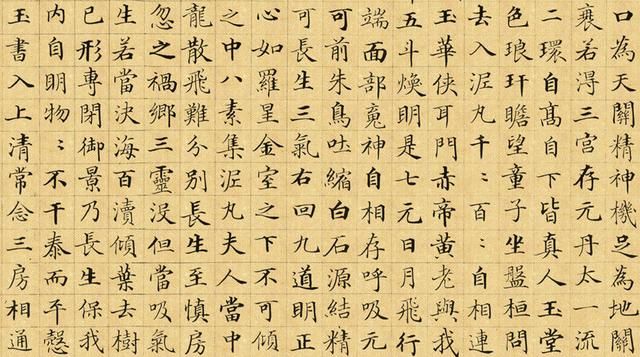 口為天關精神機足為地關
衰若得三宮存元丹太一流
二環自高自下皆真人玉堂
色琅玕瞻望童子坐盤桓問
去入泥丸千〻百〻自相連
玉華俠耳門赤帝黃老與我
五斗煥明是七元日月飛行
端面部魂神自相存呼吸元
可前朱鳥吐縮白石源結精
可長生三氣右回九道明正
心如羅星金室之下不可傾
之中八素集泥丸夫人當中
龍散飛難分別長生至慎房
忽之禍鄉三靈沒但當吸氣
生若當決海百瀆傾葉去樹
已形專閉御景乃長生保我
內自明物〻不干泰而平愨
玉書入上清常念三房相通